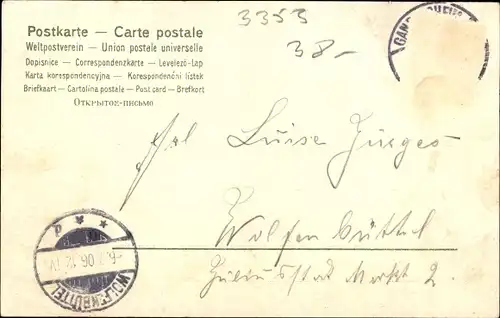 3353
38.-
Postkarte — Carte postale
Weltpostverein — Union postale universelle
Dopisnice — Correspondenzkarte — Levelező-Lap
Karta korespondencyjna — Korespondenční lístek
Briefkaart — Cartolina postale — Post card — Brefkort
Открытое-письмо
Frl Luise Jürges
Wolfenbüttel
Juliusstadt Markt 2.
WOLFENBÜTTEL